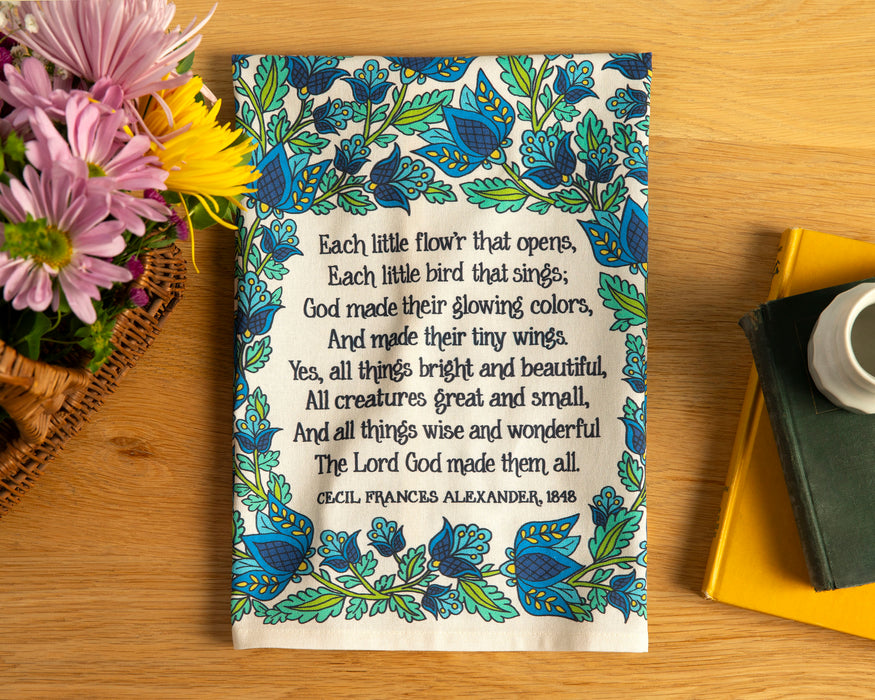 Each little flow'r that opens,
Each little bird that sings;
God made their glowing colors,
And made their tiny wings.
Yes, all things bright and beautiful,
All creatures great and small,
And all things wise and wonderful
The Lord God made them all.
CECIL FRANCES ALEXANDER, 1848